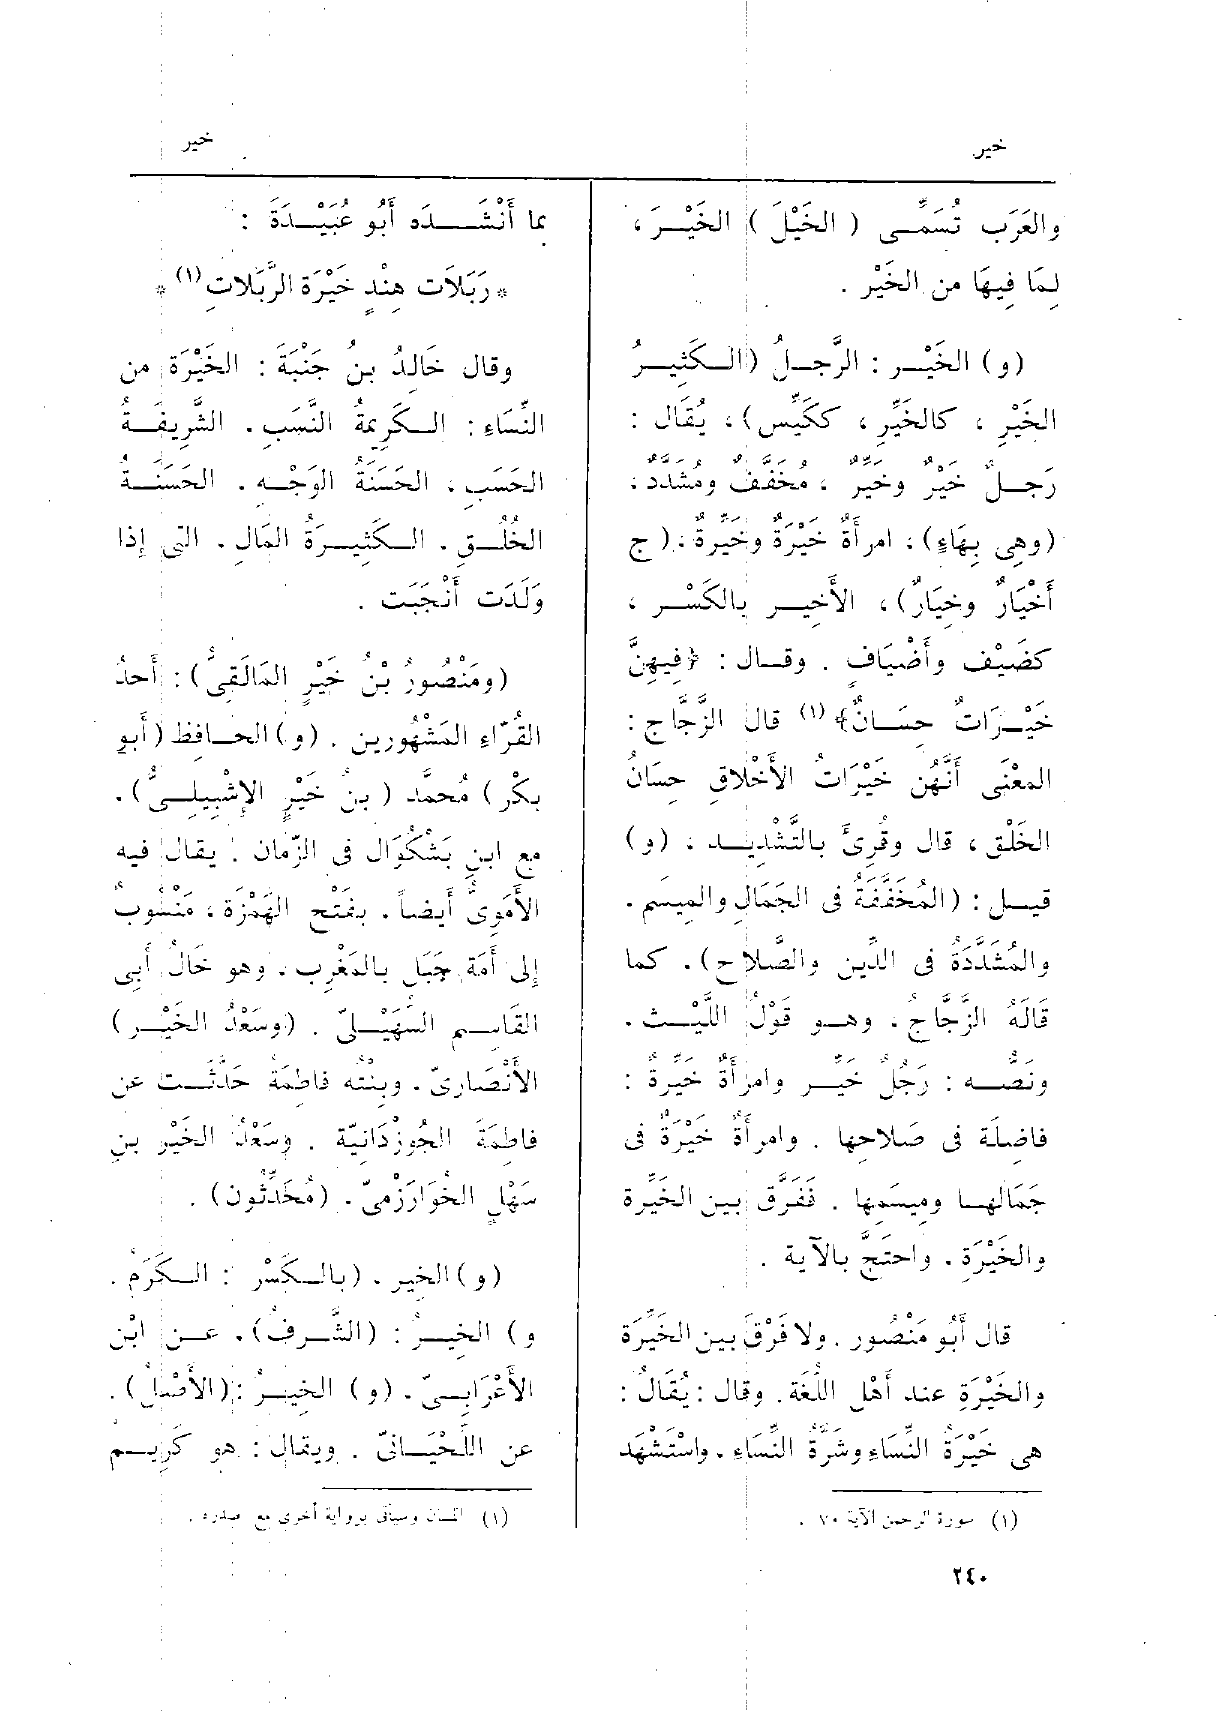 خير
والعَرَب تُسَمِّـى ( الخَيْلَ ) الخَيْـرَ ،
لِمَا فِيهَا من الخَيْر .
(و) الخَيْـر : الرَّجـلُ (الـكَثِيـرُ
الخَيْرِ ، كالخَيِّرِ ، ككَيِّس) ، يُقَال :
رَجـلٌ خَيْرٌ وخَيِّرٌ ، مُخَفَّفٌ ومُشَدَّد ،
(وهِى بِهَاءٍ) ، امرأةٌ خَيْرَةٌ وخَيِّرةٌ ، ( ج
أَخْيَارٌ وخِيَارٌ) ، الأَخِيـر بالكَسْـر ،
كضَيْف وأَضْيَافٍ . وقـال : ﴿فِيهِنَّ
خَيْـرَاتٌ حِسَـانٌ﴾ (١) قال الزَّجّاج :
المعْنَى أَنَّهُن خَيْرَاتُ الأَخْلاقِ حِسَانُ
الخَلْق ، قال وقُرِئَ بالتَّشْدِيـد ، (و)
قيـل : (المُخَفَّفَةُ فى الجَمَالِ والمِيسم .
والمُشَدَّدَةُ فى الدِّين والصَّلاح) . كما
قَالَهُ الزَّجَّاج . وهـو قَوْلُ اللَّيْـث .
ونَصُّـه : رَجُلٌ خَيِّـر وامرأَةٌ خَيِّرةٌ :
فاضِلَة فى صَلاحِها . وامرأَةٌ خَيْرَةٌ فى
جَمَالِهـا ومِيسَمِها . ففَرَّق بين الخَيِّرة
والخَيْرَةِ . واحتَجَّ بالآية .
قال أَبُو مَنْصُور . ولا فَرْقَ بين الخَيِّرَة
والخَيْرَةِ عند أَهْلِ اللُّغَة . وقال : يُقَالُ :
هى خَيْرَةُ النِّسَاءِ وشَرَّةُ النِّسَاءِ . واسْتَشْهَد
(١) سورة الرحمن الآية ٧٠ .
خير
بما أَنْشَـده أَبُو عُبَيْـدَةَ :
* رَبَلاَت هِنْدٍ خَيْرَةِ الرَّبَلاتِ (١) *
وقال خَالدُ بنُ جَنْبَةَ : الخَيْرَة من
النِّسَاءِ : الـكَرِيمةُ النَّسَب . الشَّرِيفَـةُ
الحَسَب ، الحَسَنَةُ الوَجْـه . الحَسَنَـةُ
الخُلُـقِ . الـكَثِيـرَةُ المَالِ . التى إذا
وَلَدَت أَنْجَبَت .
(ومَنْصُورُ بْنُ خَيْرٍ المَالَقِىُّ) : أَحدُ
القُرّاءِ المَشْهُورين . (و) الحـافظ (أَبو
بكْر) مُحمَّد (بنُ خَيْرٍ الإِشْبِيلِـىُّ) .
مع ابنِ بَشْكُوَال فى الزّمان . يقال فيه
الأَمَوِىُّ أَيضاً . بفَتْح الهَمْزة ، مَنْسُوبٌ
إلى أَمَة جَبَل بالمَغْرِب . وهو خَالُ أَبى
القَاسِـم السُّهَيْلـىّ . (وسَعْدُ الخَيْـر)
الأَنْصَارىّ . وبِنْتُه فاطِمَةُ حَدَّثَـت عن
فاطِمَةَ الجُوزْدَانِيّة . وسَعْدُ الخَيْر بنِ
سَهْلٍ الخُوَارَزْمىّ . (مُحَدِّثُون) .
(و) الخِير . (بالـكَسْر : الـكَرَمُ .
و) الخِيـرُ : (الشَّـرفُ) . عـن ابْن
الأَعْرَابـىّ . (و) الخِيـرُ : (الأَصْلُ) .
عن اللِّحْيَـانىّ . ويقال : هو كَرِيـم
(١) اللسان وسيأتى برواية أخرى مع صدره .
٢٤٠